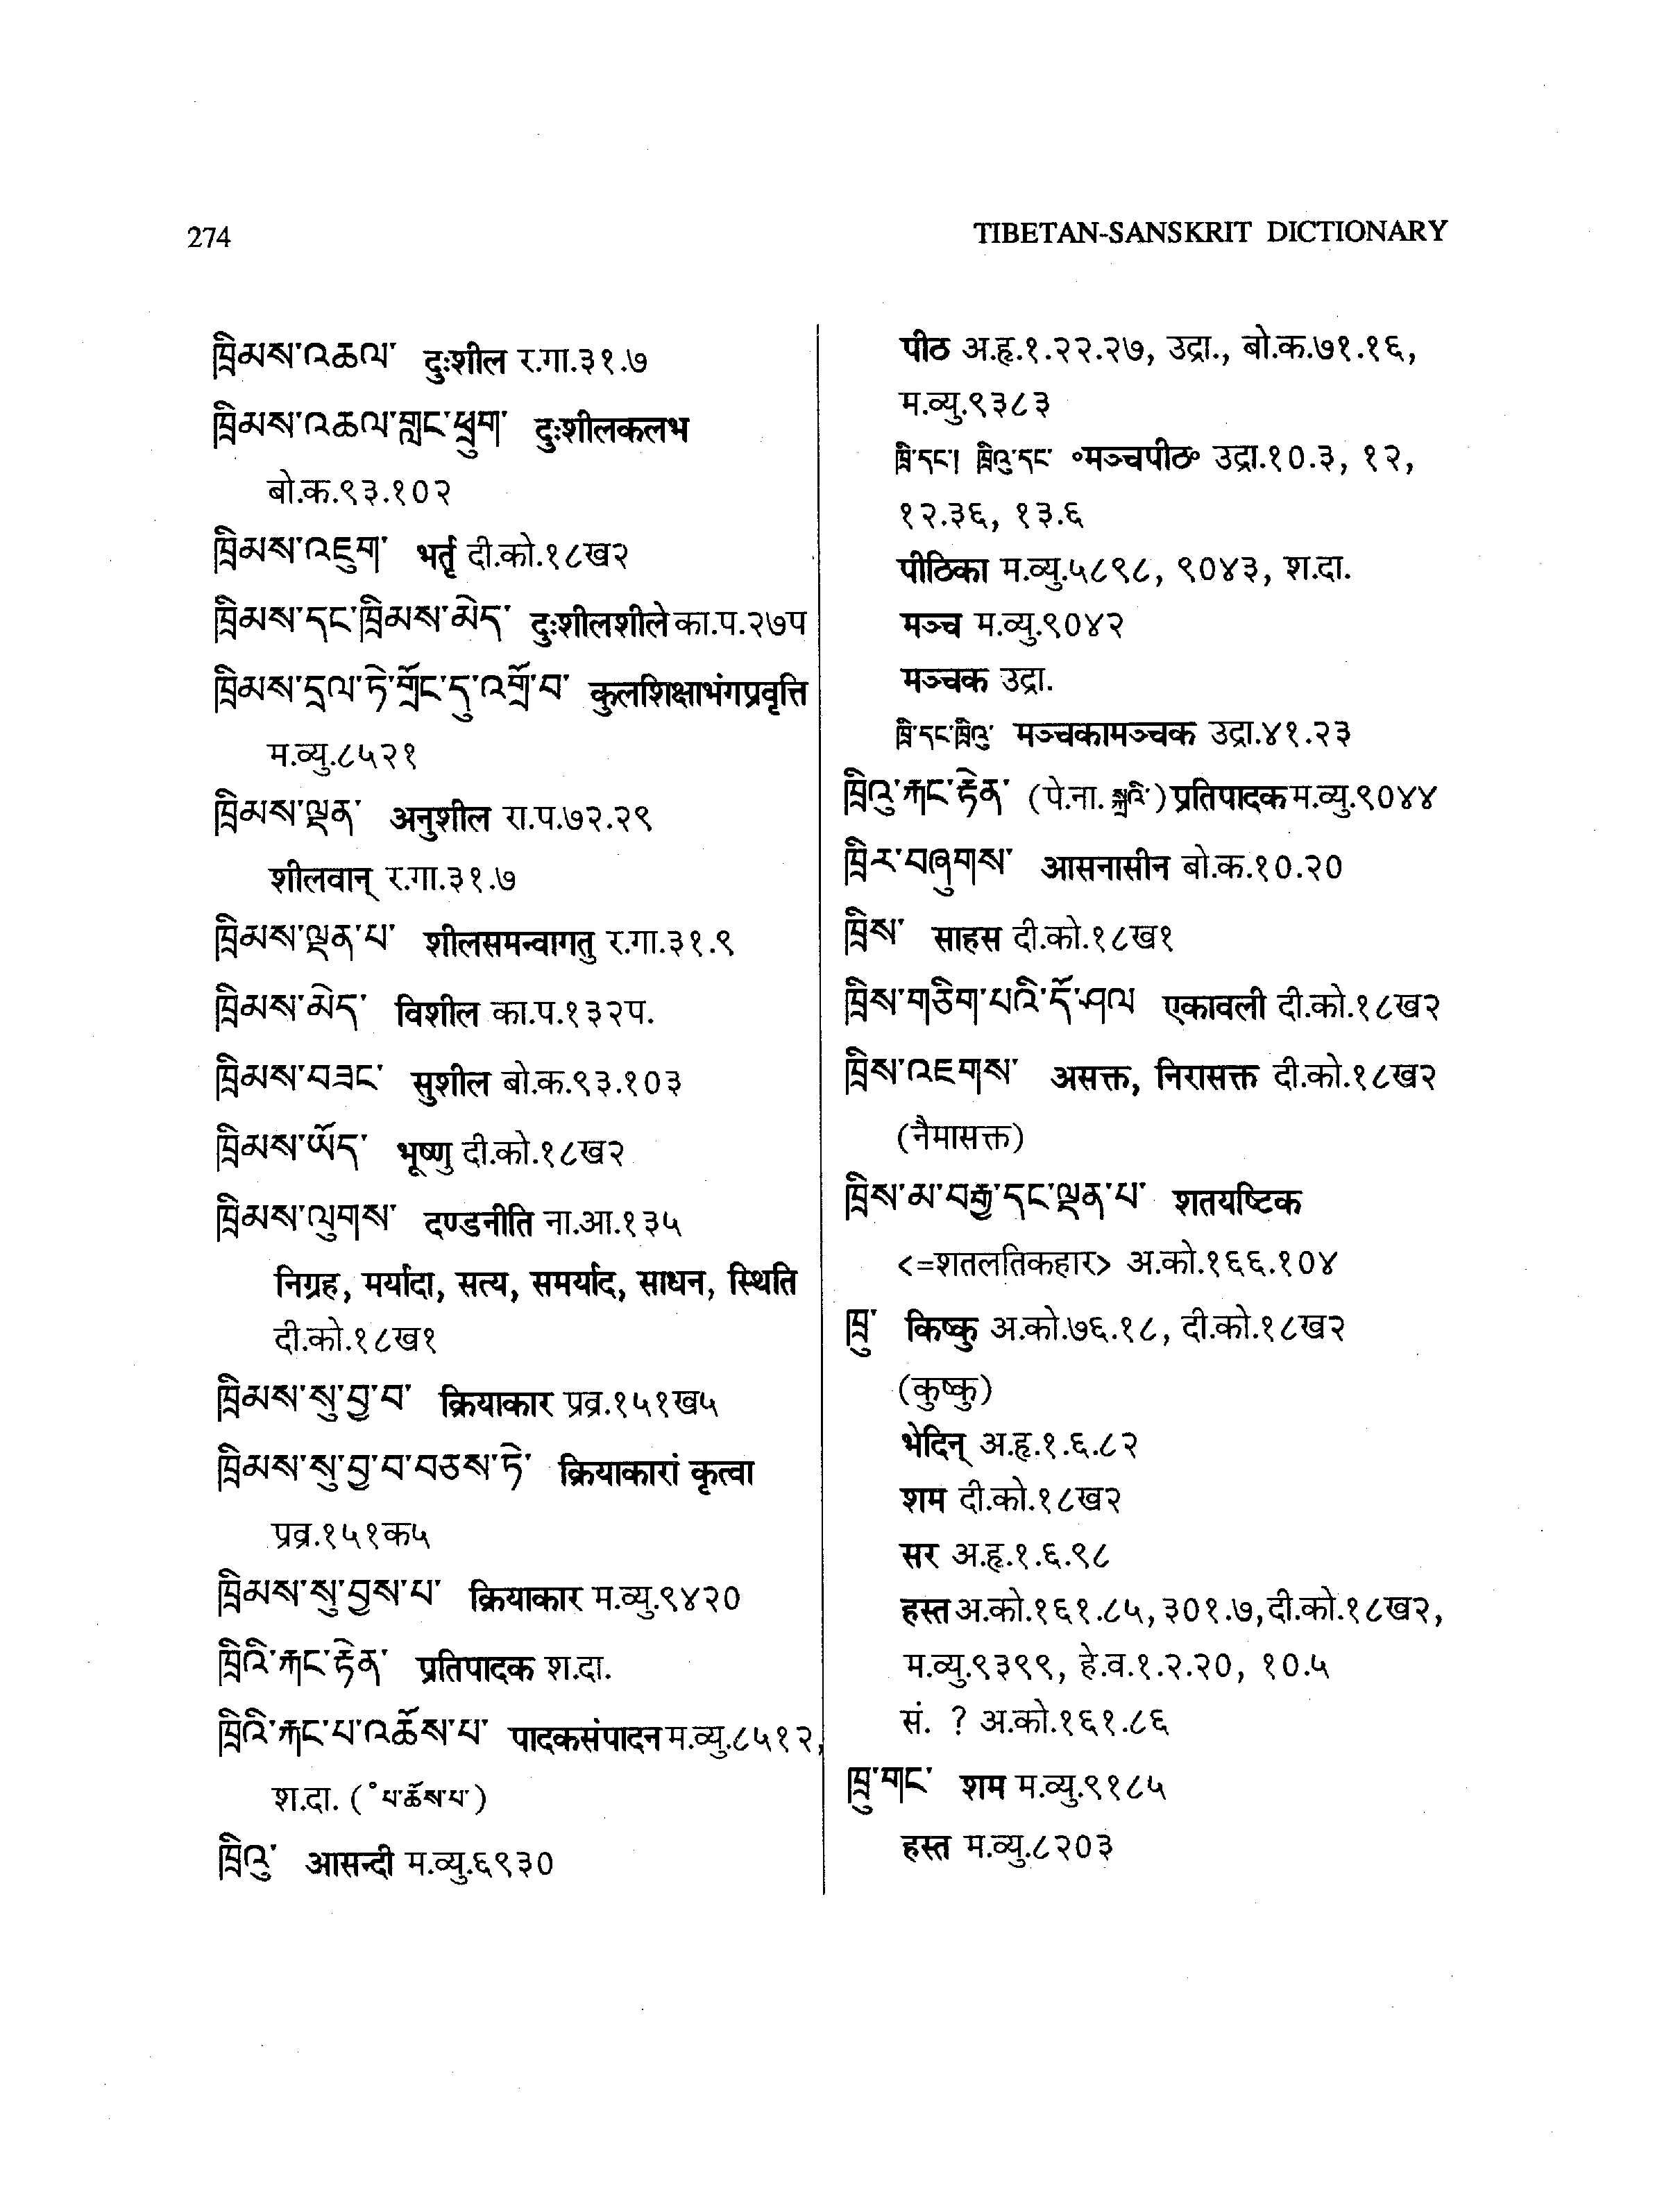 274
TIBETAN-SANSKRIT DICTIONARY
ཁྲིམས་འཆལ་ दुःशील र.गा.३१.७
ཁྲིམས་འཆལ་གླང་ཕྲུག་ दुःशीलकलभ
बो.क.९३.१०२
ཁྲིམས་འཇུག་ भर्तृ दी.को.१८ख२
ཁྲིམས་དང་ཁྲིམས་མེད་ दुःशीलशीले का.प.२७प
ཁྲིམས་དྲལ་ཏེ་གྲོང་དུ་འགྲོ་བ་ कुलशिक्षाभंगप्रवृत्ति
म.व्यु.८५२१
ཁྲིམས་ལྡན་ अनुशील रा.प.७२.२९
शीलवान् र.गा.३१.७
ཁྲིམས་ལྡན་པ་ शीलसमन्वागतु र.गा.३१.९
ཁྲིམས་མེད་ विशील का.प.१३२प.
ཁྲིམས་བཟང་ सुशील बो.क.९३.१०३
ཁྲིམས་ཡོད་ भूष्णु दी.को.१८ख२
ཁྲིམས་ལུགས་ दण्डनीति ना.आ.१३५
निग्रह, मर्यादा, सत्य, समर्याद, साधन, स्थिति
दी.को.१८ख१
ཁྲིམས་སུ་བྱ་བ་ क्रियाकार प्रव्र.१५१ख५
ཁྲིམས་སུ་བྱ་བ་བཅས་ཏེ་ क्रियाकारां कृत्वा
प्रव्र.१५१क५
ཁྲིམས་སུ་བྱས་པ་ क्रियाकार म.व्यु.९४२०
ཁྲིའི་རྐང་རྟེན་ प्रतिपादक श.दा.
ཁྲིའི་རྐང་པ་འཆོས་པ་ पादकसंपादन म.व्यु.८५१२,
श.दा. (°པ་ཆོས་པ་)
ཁྲིའུ་ आसन्दी म.व्यु.६९३०
पीठ अ.हृ.१.२२.२७, उद्रा., बो.क.७१.१६,
म.व्यु.९३८३
ཁྲི་དང་། ཁྲིའུ་དང་ °मञ्चपीठ° उद्रा.१०.३, १२,
१२.३६, १३.६
पीठिका म.व्यु.५८९८, ९०४३, श.दा.
मञ्च म.व्यु.९०४२
मञ्चक उद्रा.
ཁྲི་དང་ཁྲིའུ་ मञ्चकामञ्चक उद्रा.४१.२३
ཁྲིའུ་རྐང་རྟེན་ (पे.ना. ) प्रतिपादक म.व्यु.९०४४
ཁྲིར་བཞུགས་ आसनासीन बो.क.१०.२०
ཁྲིས་ साहस दी.को.१८ख१
ཁྲིས་གཅིག་པའི་དོ་ཤལ एकावली दी.को.१८ख२
ཁྲིས་འཇགས་ असक्त, निरासक्त दी.को.१८ख२
(नैमासक्त)
ཁྲིས་མ་བརྒྱ་དང་ལྡན་པ་ शतयष्टिक
<=शतलतिकहार> अ.को.१६६.१०४
ཁྲུ་ किष्कु अ.को.७६.१८, दी.को.१८ख२
(कुष्कु)
भेदिन् अ.हृ.१.६.८२
शम दी.को.१८ख२
सर अ.हृ.१.६.९८
हस्त अ.को.१६१.८५, ३०१.७, दी.को.१८ख२,
म.व्यु.९३९९, हे.व.१.२.२०, १०.५
सं. ? अ.को.१६१.८६
ཁྲུ་གང་ शम म.व्यु.९१८५
हस्त म.व्यु.८२०३